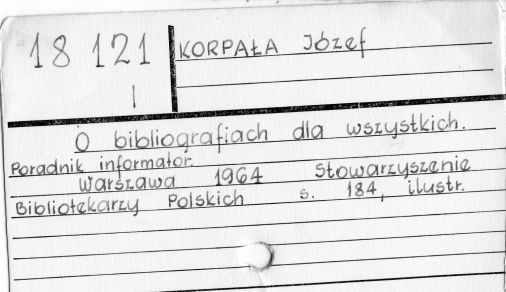 18 121
I
KORPAŁA Józef
O bibliografiach dla wszystkich.
Poradnik informator.
Warszawa 1964 Stowarzyszenie
Bibliotekarzy Polskich s. 184, ilustr.